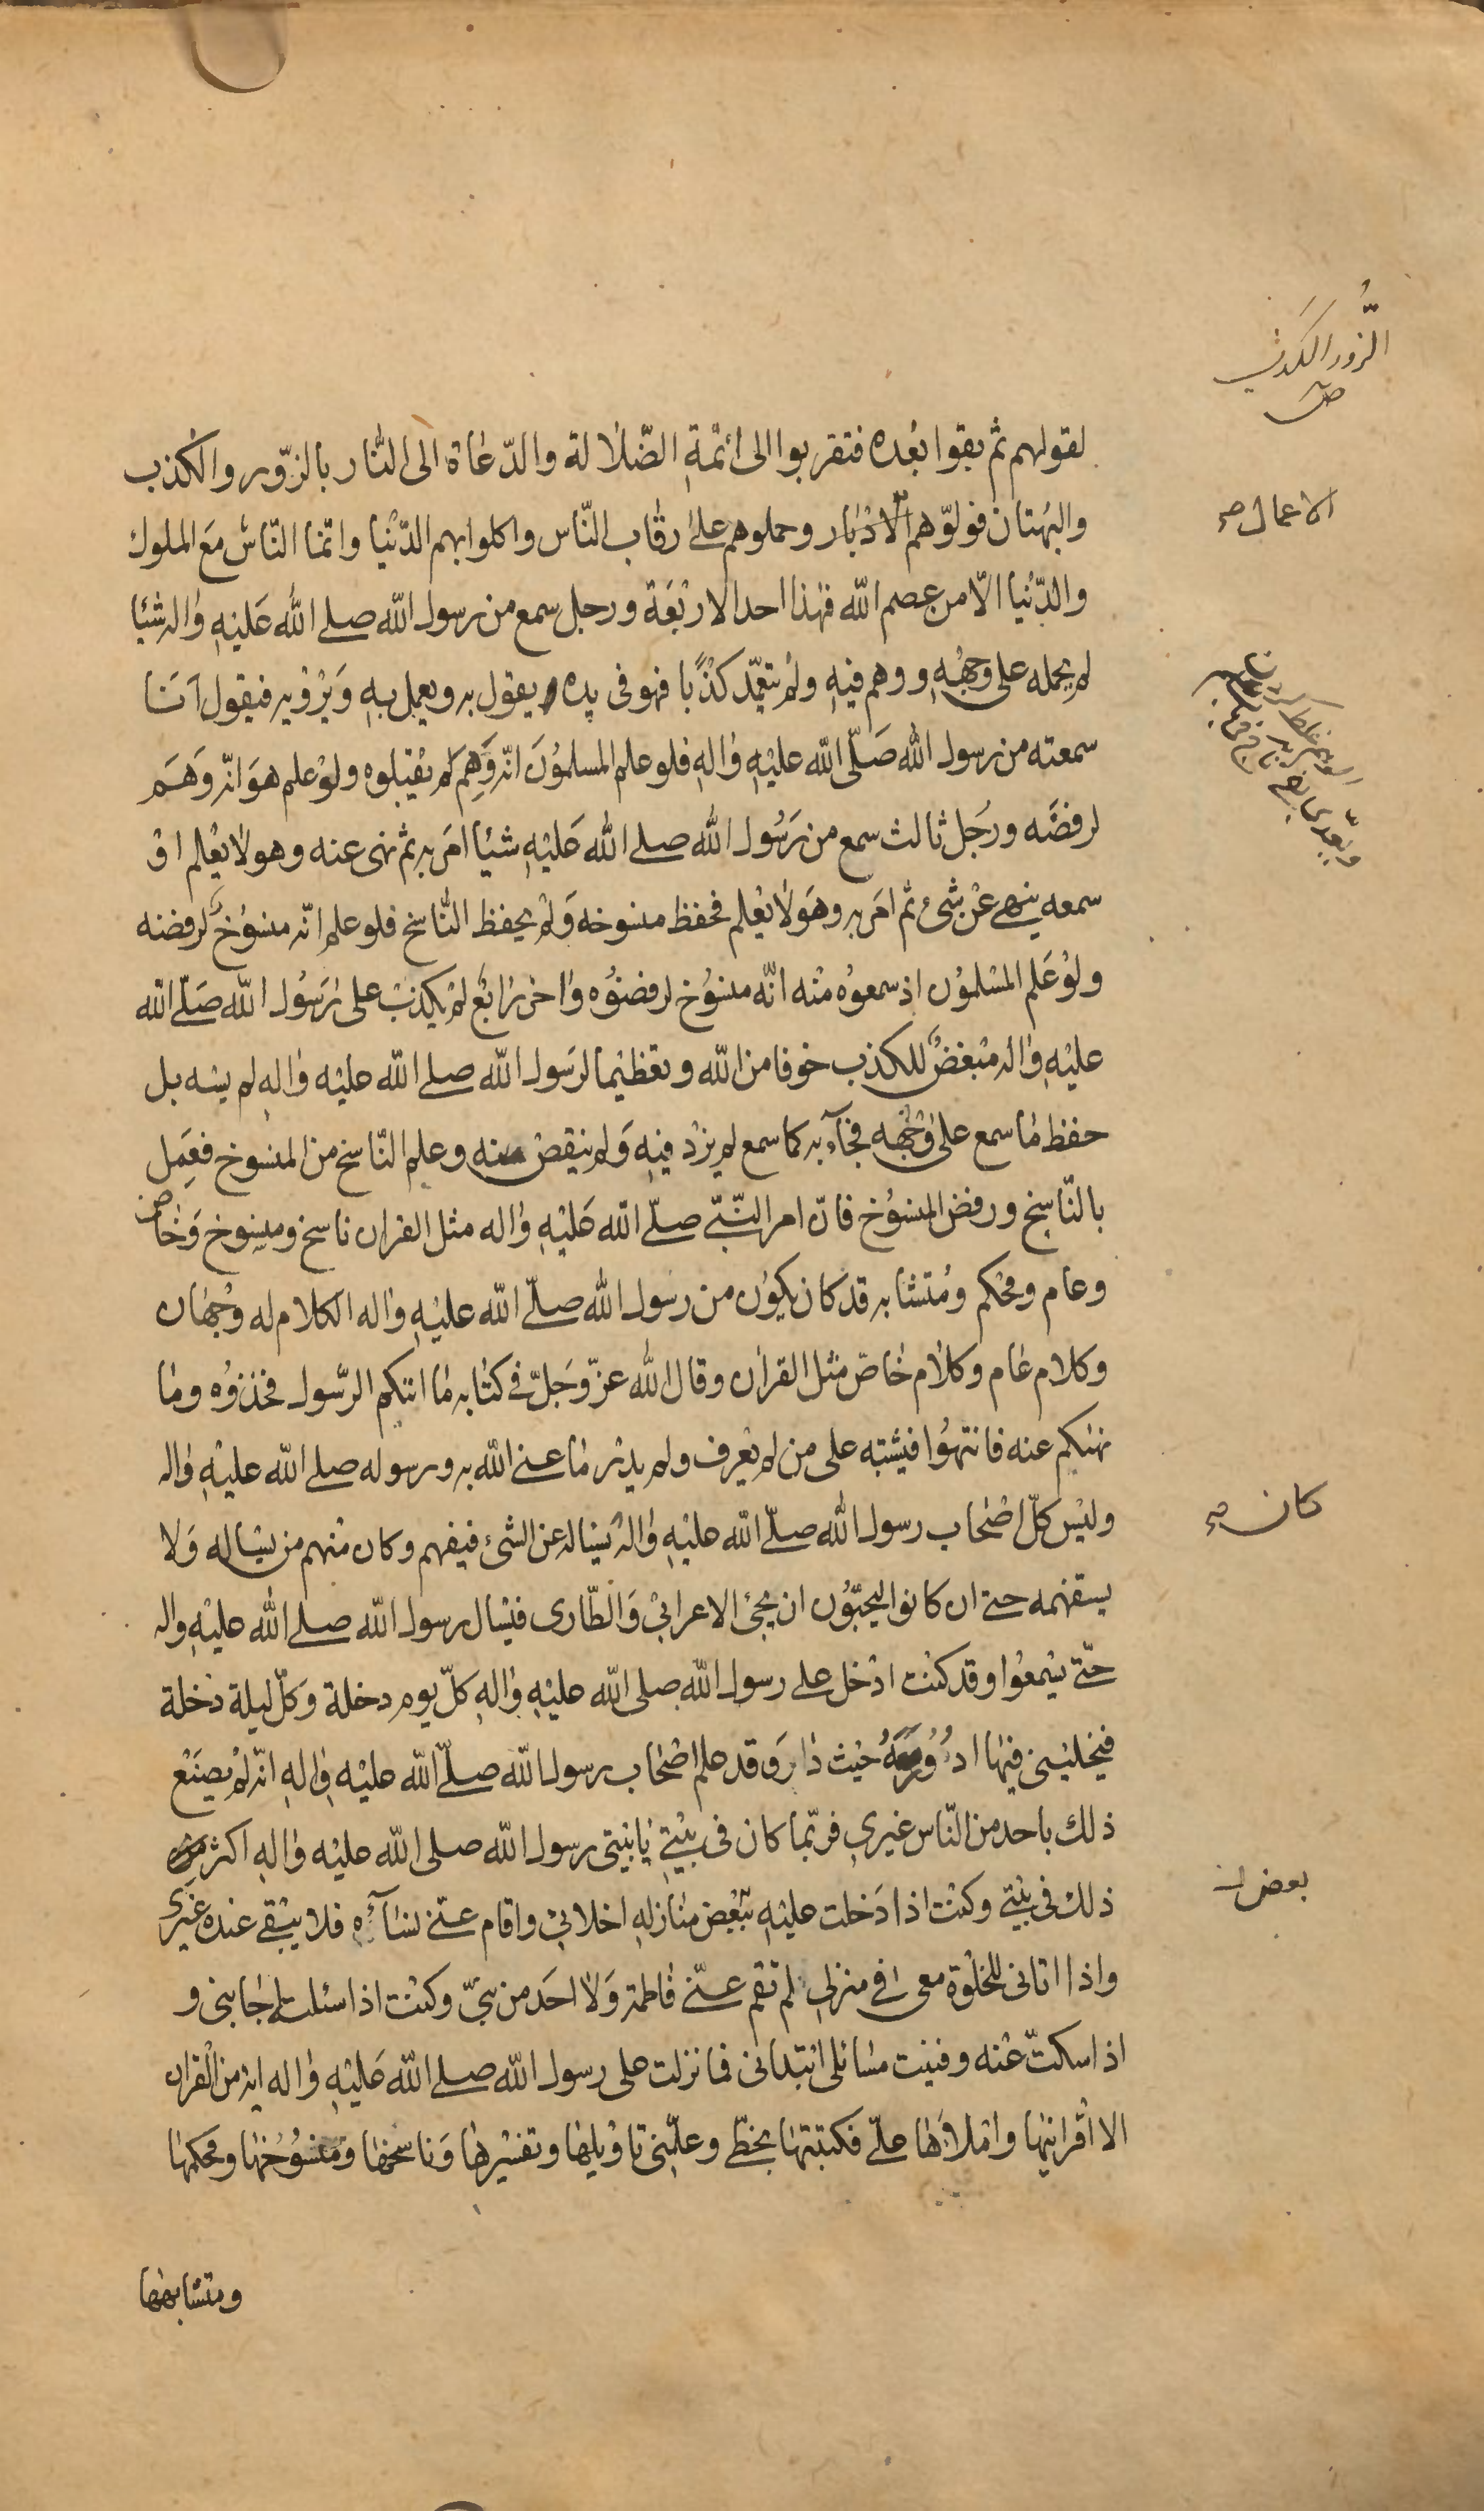 الزُّور الكذب
ص
لقولهم ثم بقوا بعْده فتقربوا الى ائمّةِ الضّلالة والدّعاة الى النّار بالزّور والكذب
والبهْتان فولّوهم الادْبار وحملوهم علىٰ رقاب النّاس واكلوا بهم الدّنْيا وانّما النّاسُ مَع الملوك
الاعمال صح
والدّنْيا الّا من عصم اللّه فهٰذا احد الاربْعَة ورجل سمع من رسول اللّه صلى اللّه عَليْهِ وٰاله شيْئا
لم يحمله على وجهْهِ ووهم فيْهِ ولمْ يتعمّد كذْبًا فهو فى يده يقول به ويعمل بهِ وَيرْوْيه فيقول اَنَا
سمعته من رسول اللّه صَلّى اللّه عليْهِ وٰالهِ فلو علم المسلموُنَ انّه وَهِمَ لم يقْبلوه ولوْ علم هوَ انّه وَهَم
لرفضَه ورجُل ثالث سمع من رَسُول اللّه صلى اللّه عَليْهِ شيْئا امَر به ثم نهى عنه وهو لا يعْلم اوْ
سمعه ينهى عنْ شئ ثم امَر به وهَو لا يعْلم فحفظ منسوخه وَلمْ يحفظ النّاسخ فلو علم انّه منسُوخ لرفضه
ولوْ عَلم المسْلموُن اذ سمعوهُ منْه انّه منسوُخ لرفضوُه وٰاخر رٰابعٌ لمْ يكذبْ على رَسُول اللّه صَلّى اللّه
عليْهِ وٰاله مبْغضٌ للكذب خوفا من اللّه وتعظيْما لرَسول اللّه صلى اللّه عليْه وٰالهِ لم يسْه بل
حفظ مٰا سمع علىٰ وجْهه فجٰآء به كما سمع لم يزدْ فيْهِ وَلم ينقصْ منه وعلم النّاسخ من المنسوخ فعَمِل
بالنّاسخ ورفض المنسوُخ فانّ امر النّبىّ صلّى اللّه عَليْهِ وٰاله مثل القران ناسخ ومنسوخ وَخٰاص
وعام ومحْكم ومُتشٰابه قد كان يكون من رسول اللّه صلّى اللّه عليْهِ وٰاله الكلام له وجْهٰان
وكلام عٰام وكلام خٰاصّ مثل القرٰان وقال اللّه عزّ وَجَلّ فى كتٰابه مٰا اتٰكم الرّسول فخذوُه ومٰا
نهٰيكم عنه فانتهوُا فيشْتبه على من لم يعْرف ولم يدْر مٰا عنى اللّه به ورسوله صلى اللّه عليْهِ وٰاله
وليْس كلّ اصْحٰاب رسول اللّه صلّى اللّه عليْهِ وٰاله يسْٔاله عن الشئ فيفهم وكان منْهم من يسْٔاله وَلا
كان صح
يستفهمه حتى ان كانوا ليحبّوُن ان يجئ الاعرابىْ وَالطّارى فيسْٔال رسول اللّه صلى اللّه عليْهِ واله
حتّى يسْمعوُا وقد كنْت ادْخل على رسول اللّه صلى اللّه عليْهِ وٰالهِ كلّ يوم دخلة وَكلّ ليلة دخلة
فيخلينى فيْها ادُورُ مَعَهُ حيْث دٰارَ وقد علم اصْحٰاب رسول اللّه صلّى اللّه عليْه وٰالهِ انّه لمْ يصنَعْ
ذلك باحد من النّاس غيْرى فربّما كان فى بيْتى يٰاتيْنى رسول اللّه صلى اللّه عليْه وٰالهِ اكثر من
ذلك فى بيْتى وكنْت اذا دَخلت عليْهِ بَعْض منٰازله اخلانىْ واقام عنّى نسٰآءه فلا يبْقى عنده غيْرى
بعض
واذا اتانى للخلْوة معى فى منزلى لم تقم عنّى فٰاطمة وَلا احَد من بنىّ وكنْت اذا سئلته اجٰابنى و
اذا سكتّ عنْه وفنيت مسٰائلى ابْتدانى فما نزلت على رسول اللّه صلى اللّه عَليْهِ وٰاله اية من الْقران
الا اقْرانيْها وامْلاَها علىّ فكتبتها بخطّى وعلّمنى تاوْيلها وتفسْيرها وَناسخهٰا ومنْسوُخهٰا ومحكمها
ومتشابهها